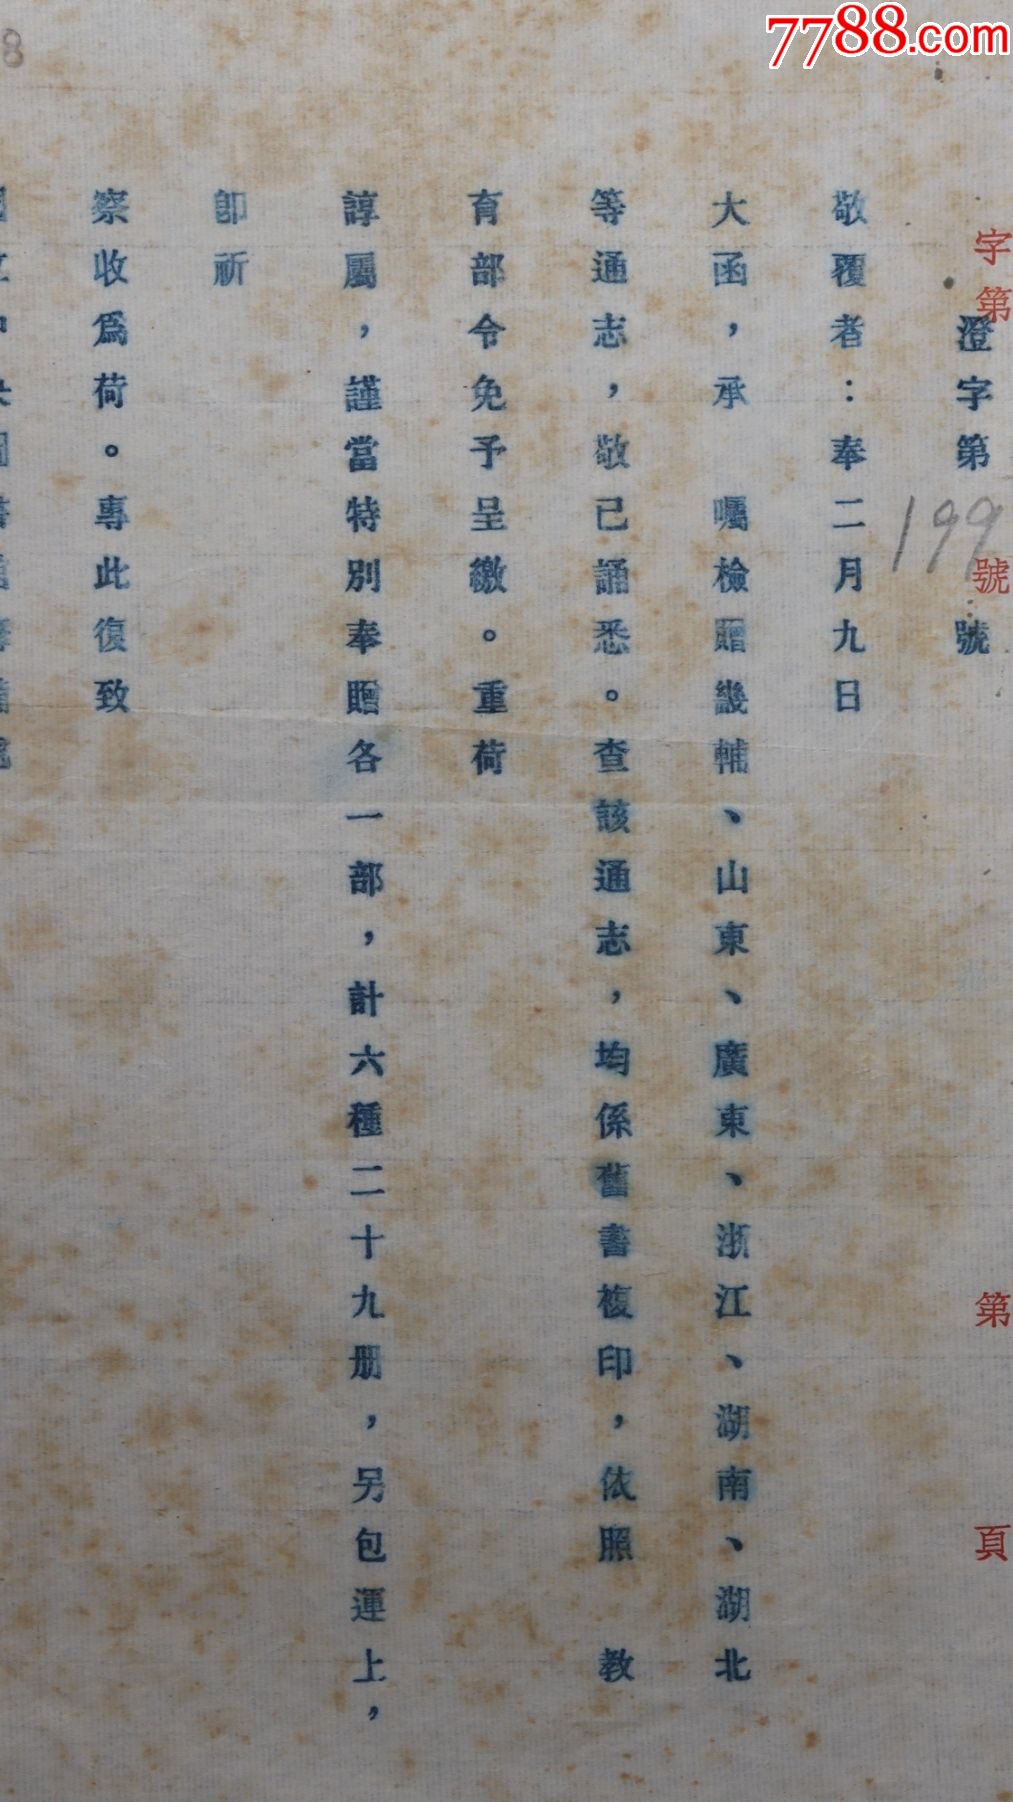 7788.com
8
字第 號 第 頁
澄字第199號
敬覆者：奉二月九日
大函，承 囑檢贈畿輔、山東、廣東、浙江、湖南、湖北
等通志，敬已誦悉。查該通志，均係舊書複印，依照 教
育部令免予呈繳。重荷
諄屬，謹當特別奉贈各一部，計六種二十九册，另包運上，
卽祈
察收爲荷。專此復致